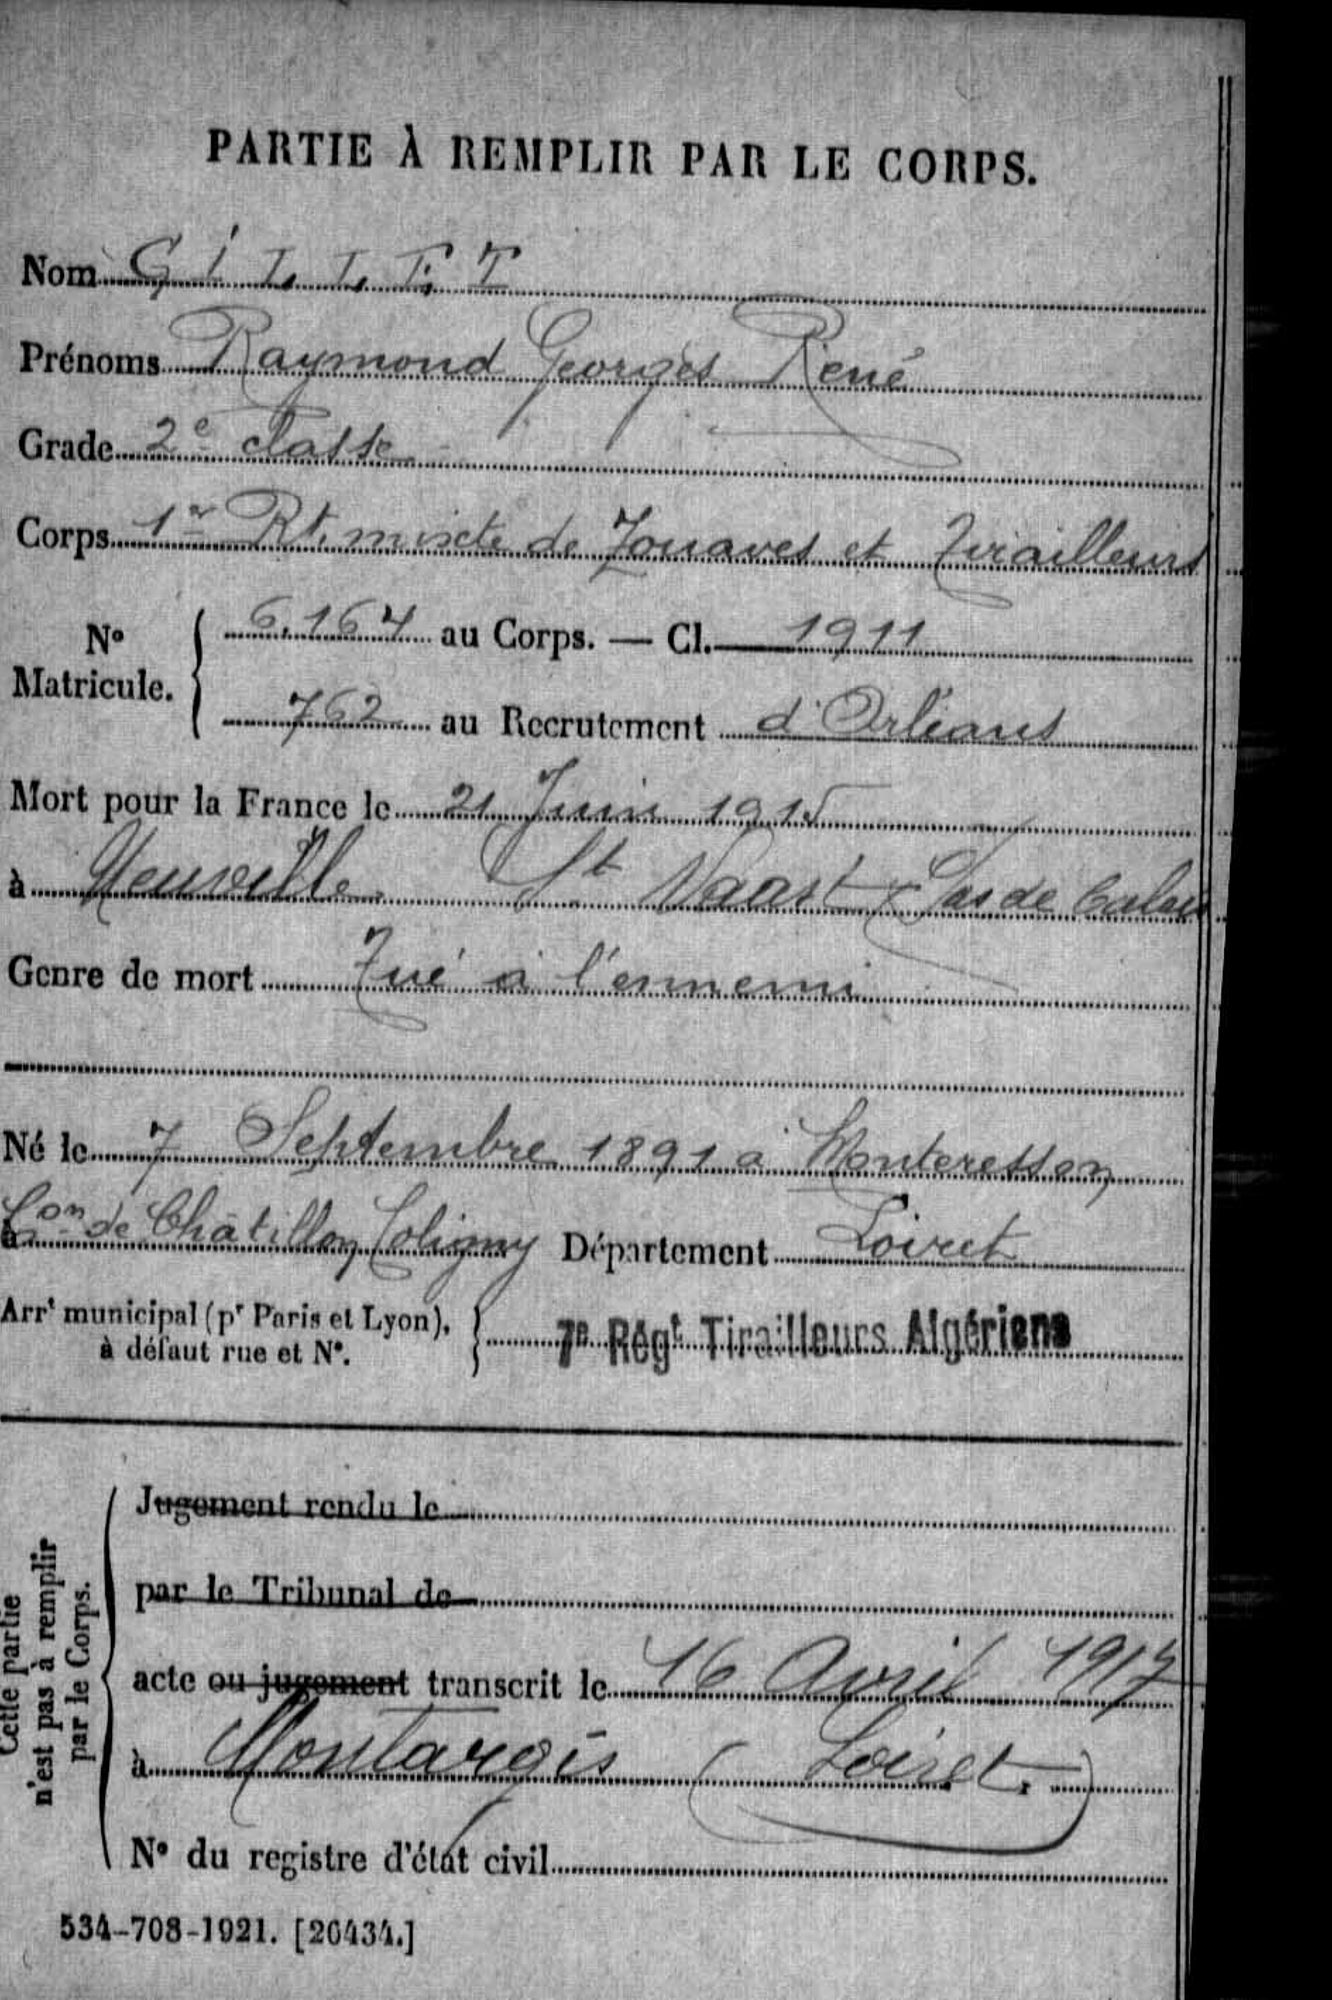 PARTIE À REMPLIR PAR LE CORPS.
Nom GILLET
Prénoms Raymond Georges René
Grade 2e classe
Corps 1er Rt. mixte de Zouaves et Tirailleurs
No Matricule. 6.164 au Corps. — Cl. 1911
762 au Recrutement d'Orléans
Mort pour la France le 21 Juin 1915
à Neuville St Vaast Pas de Calais
Genre de mort Tué à l'ennemi
Né le 7 Septembre 1891 à Monteresson
à Con de Châtillon Coligny Département Loiret
Arrt municipal (pr Paris et Lyon),
à défaut rue et No.
7e Régt Tirailleurs Algériens
Cette partie
n'est pas à remplir
par le Corps.
Jugement rendu le
par le Tribunal de
acte ou jugement transcrit le 16 Avril 1917
à Montargis (Loiret.)
No du registre d'état civil
534-708-1921. [26434.]